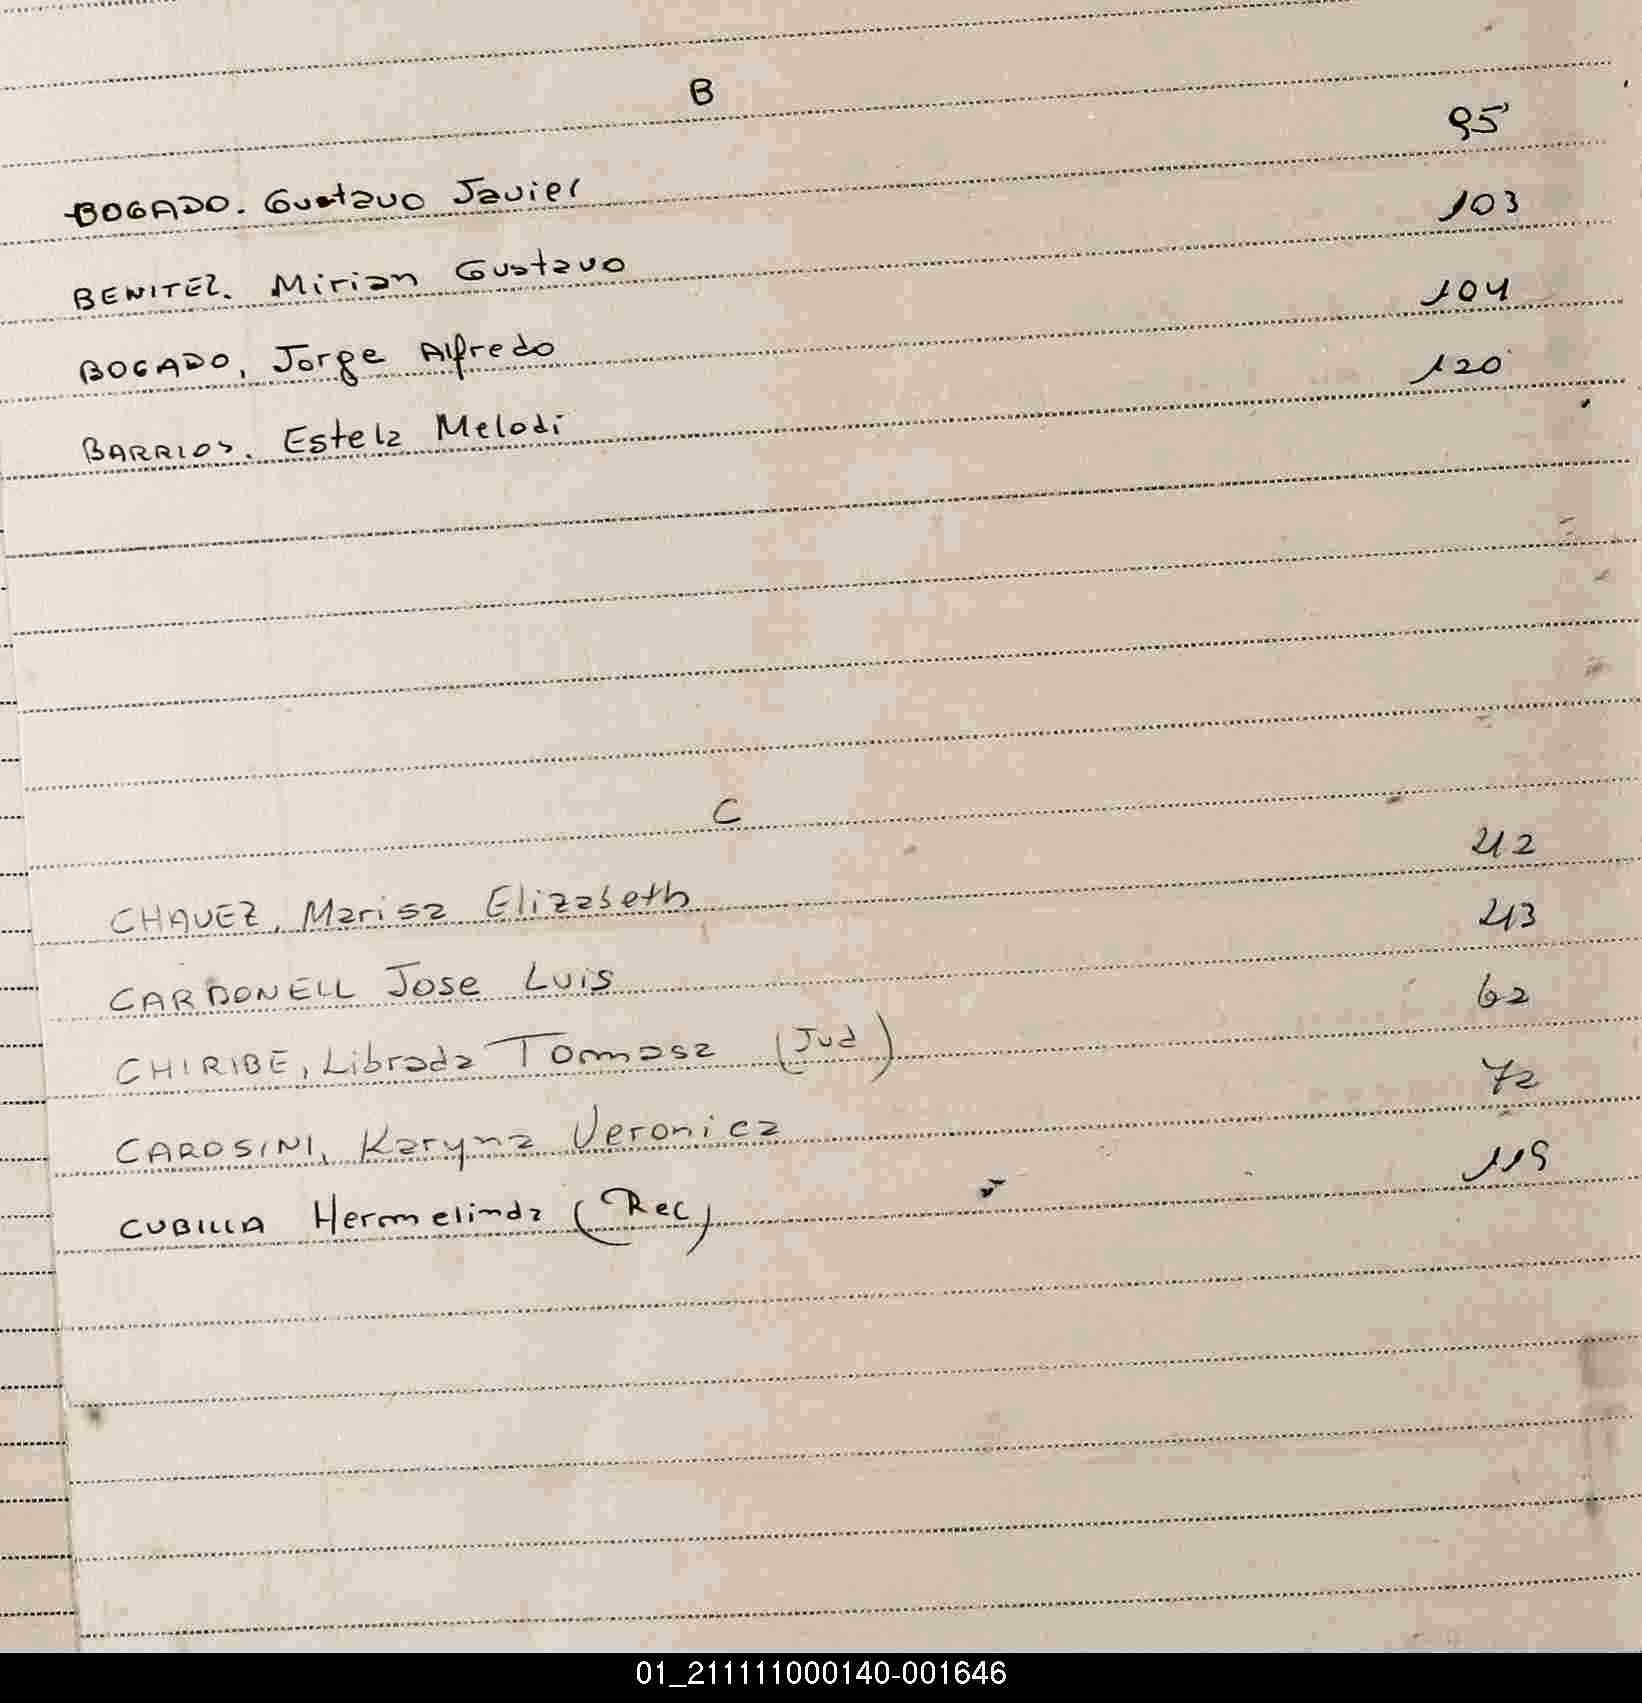 B
BOGADO. Gustavo Javier 95
BENITEZ. Mirian Gustavo 103
BOGADO, Jorge Alfredo 104
BARRIOS. Estela Melodi 120
C
CHAVEZ, Marisa Elizabeth 42
CARBONELL Jose Luis 43
CHIRIBE, Librada Tomasa (Jud) 62
CAROSINI, Karyna Veronica 72
CUBILLA Hermelinda (Rec) 119
01_211111000140-001646